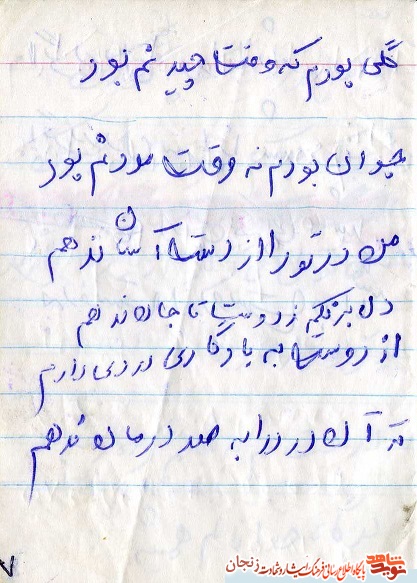 گلی بودم که وقت چیدنم نبود
جوان بودم نه وقت مردنم بود
من درد تو را از دست آسان ندهم
دل بر نکنم ز دوست تا جان ندهم
از دوست به یادگاری دردی دارم
که آن درد را به صد درمان ندهم
۷
نوید شاهد
پایگاه اطلاع رسانی فرهنگ ایثار و شهادت زنجان